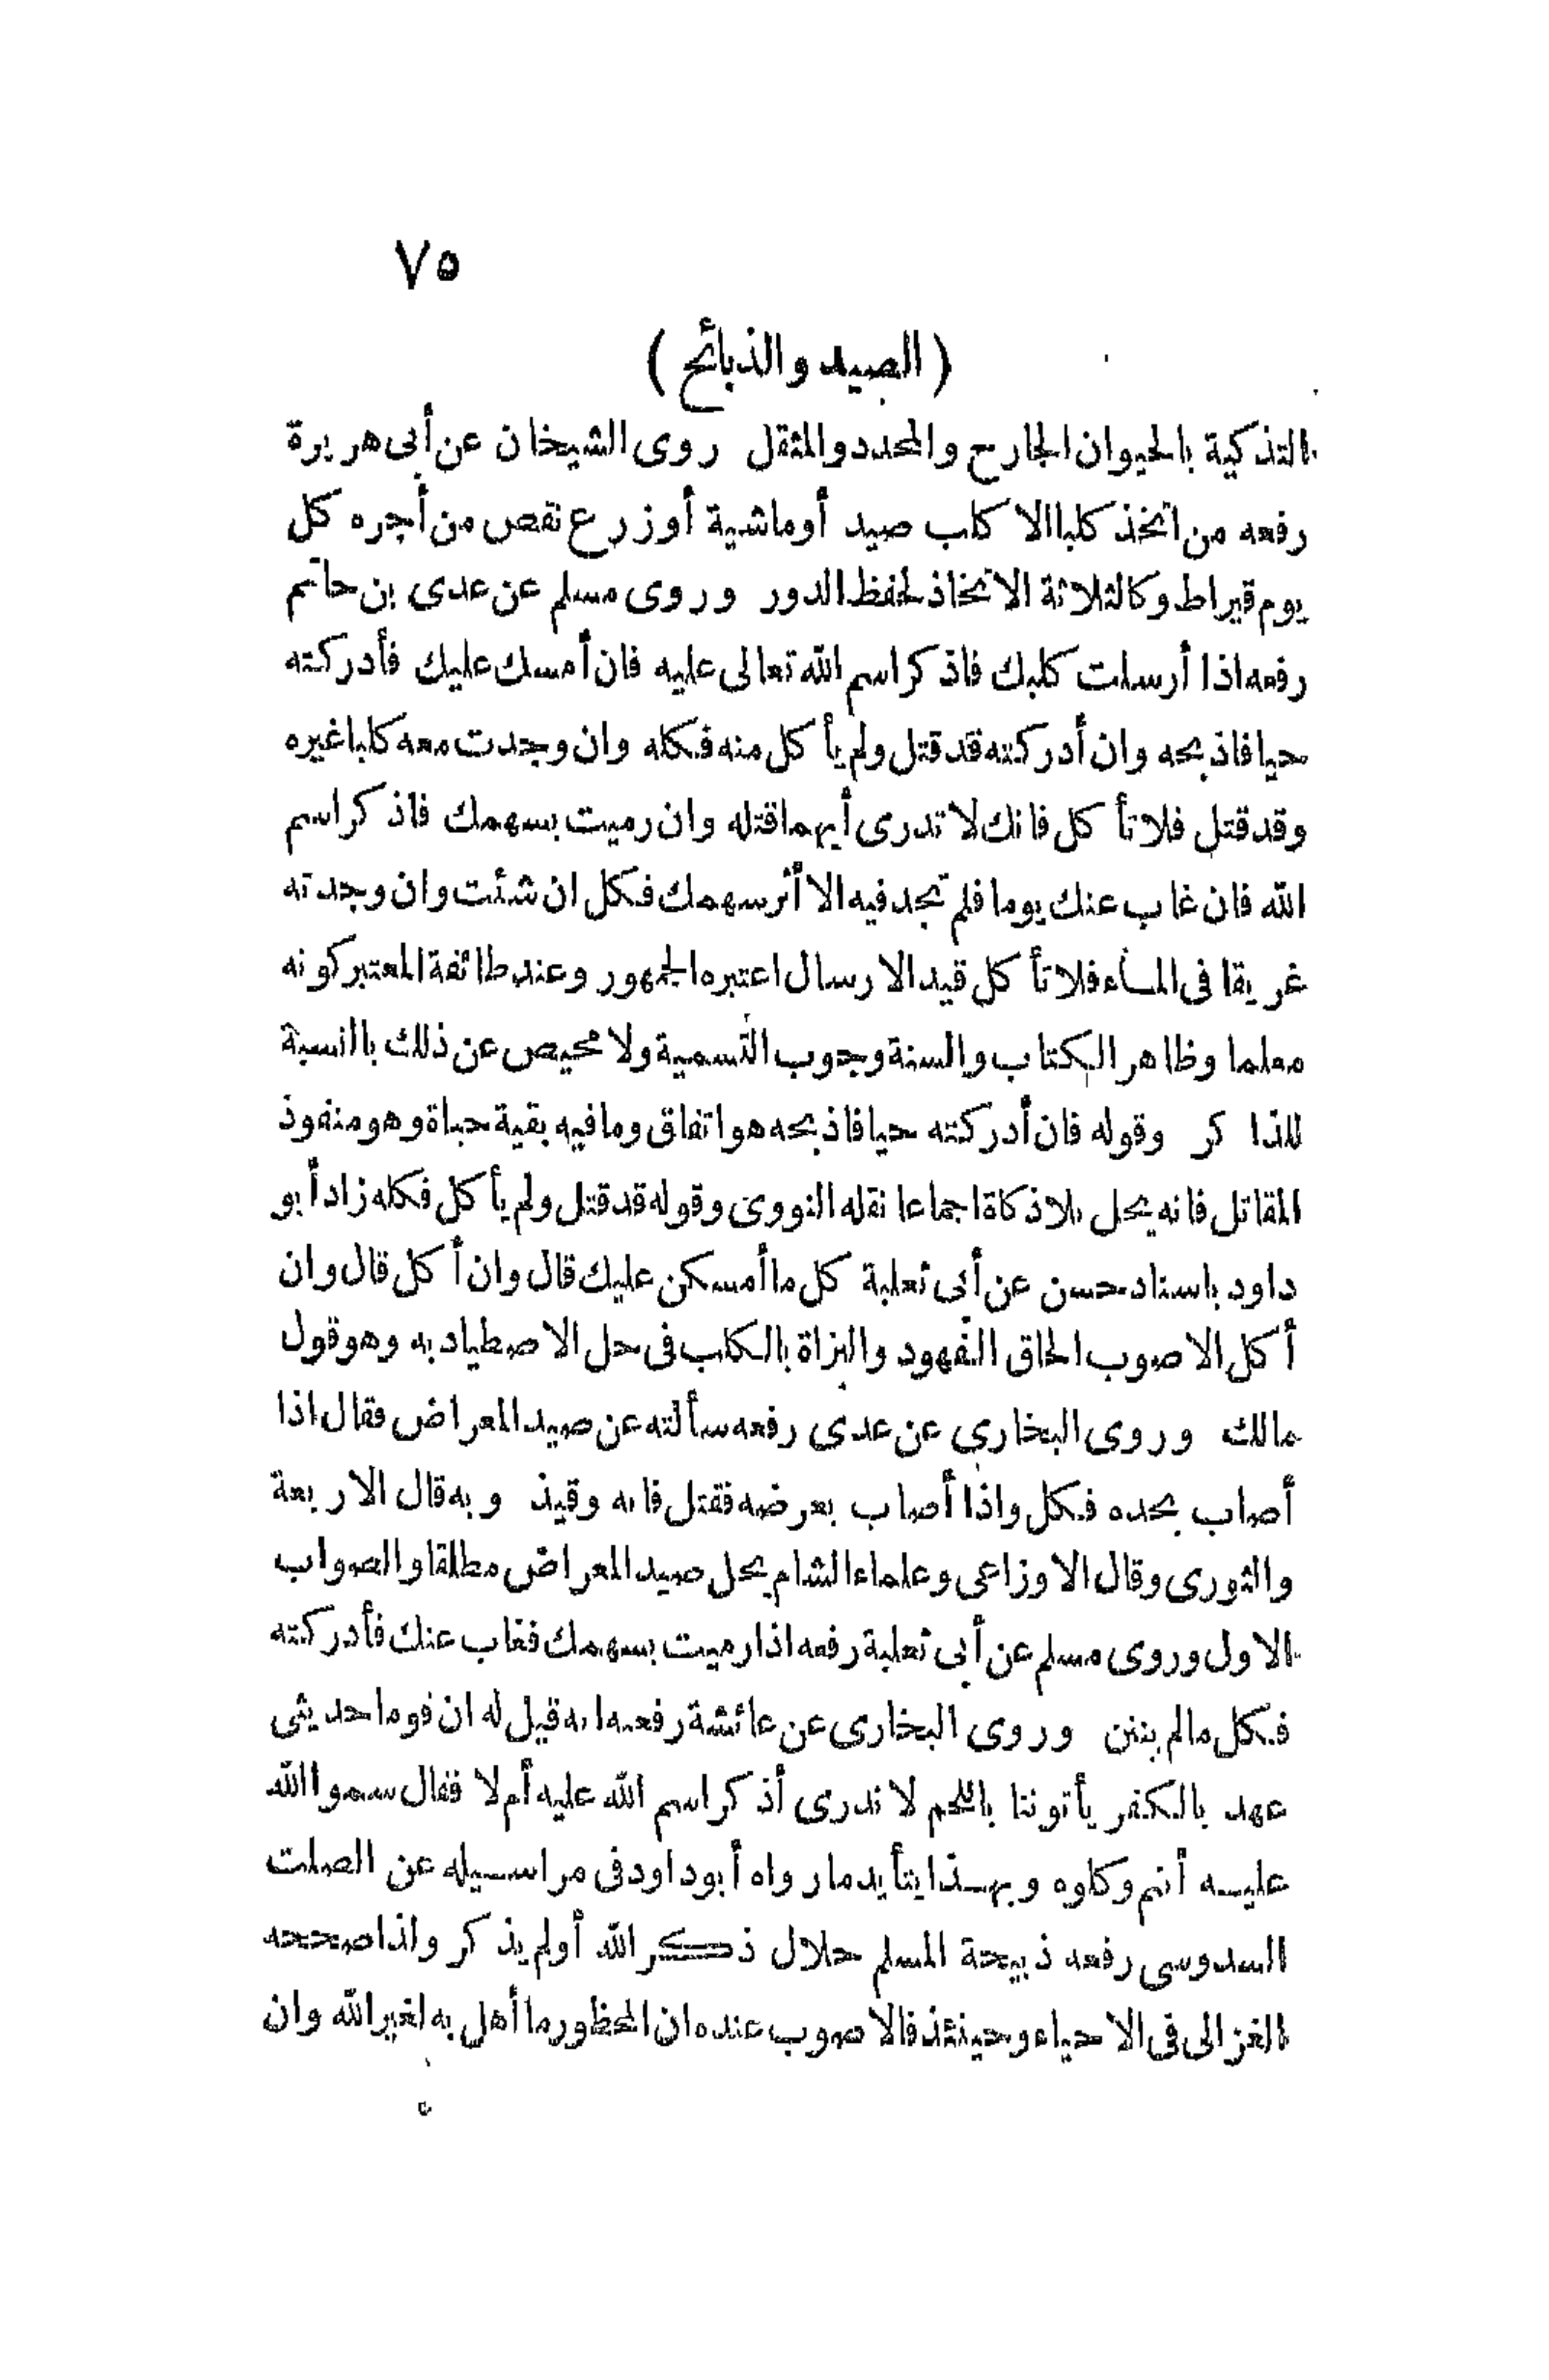 ٧٥
( الصيد والذبائح )
التذكية بالحيوان الجارح والمحدد والمثقل روى الشيخان عن أبى هريرة
رفعه من اتخذ كلبا الا كلب صيد أوماشية أوزرع نقص من أجره كل
يوم قيراط وكالثلاثة الاتخاذ لحفظ الدور وروى مسلم عن عدى بن حاتم
رفعه اذا أرسلت كلبك فاذكر اسم الله تعالى عليه فان أمسك عليك فأدركته
حيا فاذبحه وان أدركته قد قتل ولم يأكل منه فكله وان وجدت معه كلبا غيره
وقد قتل فلا تأكل فانك لا تدرى أيهما قتله وان رميت بسهمك فاذكر اسم
الله فان غاب عنك يوما فلم تجد فيه الا أثر سهمك فكل ان شئت وان وجدته
غريقا فى الماء فلا تأكل قيد الارسال اعتبره الجمهور وعند طائفة المعتبر كونه
معلما وظاهر الكتاب والسنة وجوب التسمية ولا محيص عن ذلك بالنسبة
للذاكر وقوله فان أدركته حيا فاذبحه هو اتفاق وما فيه بقية حياة وهو منفوذ
المقاتل فانه يحل بلا ذكاة اجماعا نقله النووى وقوله قد قتل ولم يأكل فكله زاد أبو
داود باسناد حسن عن أبى ثعلبة كل ما أمسكن عليك قال وان أكل قال وان
أكل الاصوب الحاق الفهود والبزاة بالكلب فى حل الاصطياد به وهو قول
مالك وروى البخارى عن عدى رفعه سألته عن صيد المعراض فقال اذا
أصاب بحده فكل واذا أصاب بعرضه فقتل فانه وقيذ وبه قال الاربعة
والثورى وقال الاوزاعى وعلماء الشام يحل صيد المعراض مطلقا والصواب
الاول وروى مسلم عن أبى ثعلبة رفعه اذا رميت بسهمك فغاب عنك فأدركته
فكل مالم ينتن وروى البخارى عن عائشة رفعه انه قيل له ان قوما حديثى
عهد بالكفر يأتوننا باللحم لا ندرى أذكر اسم الله عليه أم لا فقال سموا الله
عليه أنتم وكلوه وبهذا يتأيد ما رواه أبو داود فى مراسيله عن الصلت
السدوسى رفعه ذبيحة المسلم حلال ذكر الله أو لم يذكر واذا صححه
الغزالى فى الاحياء وحينئذ فالاصوب عنده ان المحظور ما أهل به لغير الله وان